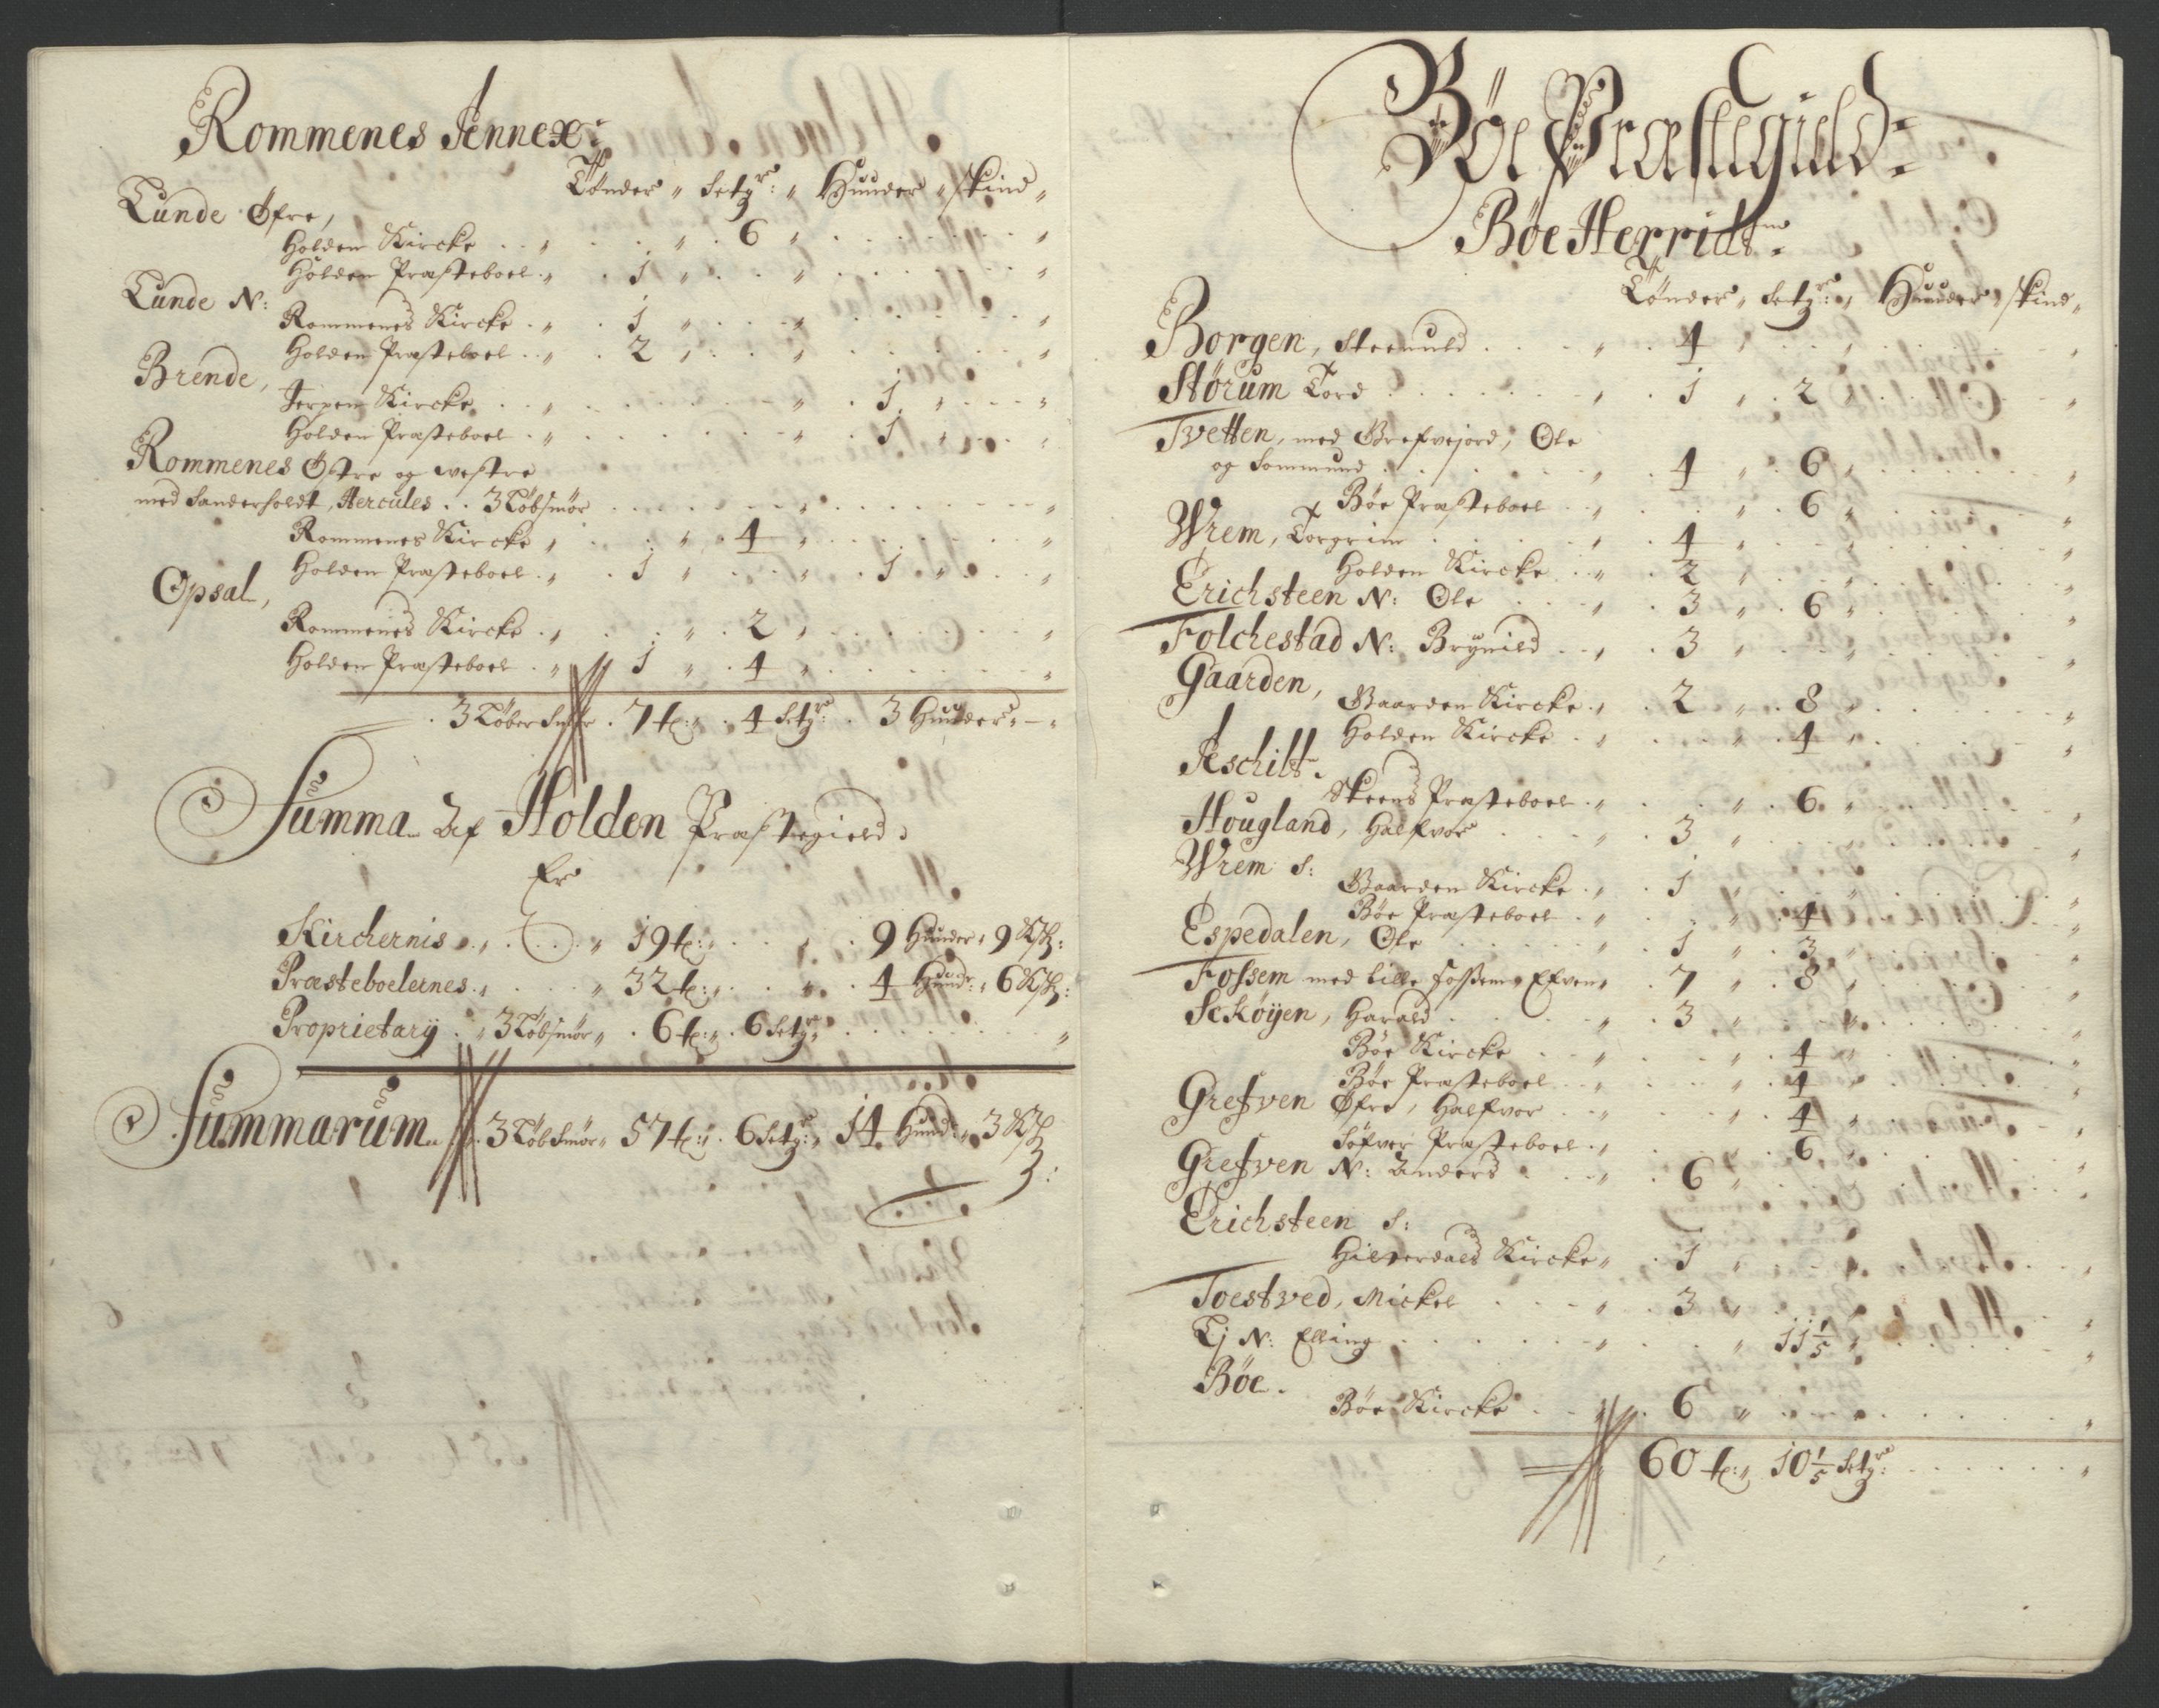 Rommenes Annex:
Tønder „ Setgr: „ Huuder „ skind „
Lunde Øfre,
Holden Kircke . . „ . . . „ . 6 „ . . . . „
Holden Præsteboel . „ . 1 „ . . „ . . . . „
Lunde N:
Rommenes Kircke . „ . 1 „ . . „ . . . . „
Holden Præsteboel . „ . 2 „ . . „ . . . . „
Brende,
Jerpen Kircke . . „ . . . . . „ . 1 „ . . „
Holden Præsteboel . „ . . . . . „ . 1 „ . . „
Rommenes Østre og westre
med Sanderholdt, Hercules . . 3 Løbsmør . . . . „ . . . . „
Rommenes Kircke „ . . „ . 4 „ . . . . „
Holden Præsteboel . „ . 1 „ . . „ . 1 „ . „
Opsal,
Rommenes Kircke . „ . . „ . 2 „ . . . . „
Holden Præsteboel . „ 1 „ . 4 „ . . . . „
. 3 Løber Smør . 7 t: „ . 4 Setgr: . 3 Huuder „ — „
Summa Af Holden Præstegield
Er
Kirchernis . „ . . . „ 19 t: „ . . „ . 9 Huuder „ 9 Ks:
Præsteboelernes . „ . . . „ 32 t: „ . . „ . 4 Huudr: „ 6 Ks:
Proprietary . „ 3 Løbsmør „ . 6 t: „ . 6 Setgr „ . . . . „
Summarum „ 3 Løb Smør „ 57 t: „ . 6 Setgr: „ 14 Hund: „ 3 Ks:
Bøe Præstegield:
Bøe Herridt:
Tønder „ Setgr: „ Huuder „ skind „
Borgen, Steenuld . . . „ . 4 „ . . „ . . . „
Størum Tord . . . . . „ . 1 „ . 2 „ . . . „
Tvetten, med Grefvejord, Ole
og Sommund . . . . „ . 4 „ . 6 „ . . . „
Bøe Præsteboel . . „ . . „ . 6 „ . . . „
Wrem, Torgrim . . . . „ . 4 „ . . „ . . . „
Holden Kircke . . „ . 2 „ . . „ . . . „
Erichsteen N: Ole . . . „ . 3 „ . 6 „ . . . „
Folchestad N: Brynild . . „ . 3 „ . . „ . . . „
Gaarden,
Gaarden Kircke . „ . 2 „ . 8 „ . . . „
Holden Kircke . „ . . „ . 4 „ . . . „
Aeschilt.
Skeens Præsteboel . „ . . „ . 6 „ . . . „
Hougland, Halfvor . . . „ . 3 „ . . . . . „
Wrem S:
Gaarden Kircke . „ . 1 „ . . „ . . . „
Bøe Præsteboel . „ . . „ . 4 „ . . . „
Espedalen, Ole . . . . „ . 1 „ . 3 „ . . . „
Fossem med lille Fossem „ Efven „ . 7 „ . 8 „ . . . „
Seköyen, Harald . . . . „ . 3 „ . . „ . . . „
Bøe Kircke . . „ . . „ . 4 „ . . . „
Bøe Præsteboel . . „ . . „ . 4 „ . . . „
Grefven Øfre, Halfvor . . „ . . „ . 4 „ . . . „
Søfver Præsteboel . „ . . . 6 „ . . . „
Grefven N: Anders . . . „ . 6 „ . . . . . „
Erichsteen S:
Hilterdals Kircke „ . 1 „ . . „ . . . „
Toestved, Mickel . . . „ . 3 „ . . . . . „
Lj N: Elling . . . . . „ . . „ 11 1/5 „ . . . „
Bøe.
Bøe Kircke . . „ . 6 „ . . . . . „
60 t: „ 10 1/5 Setgr: . . . . „